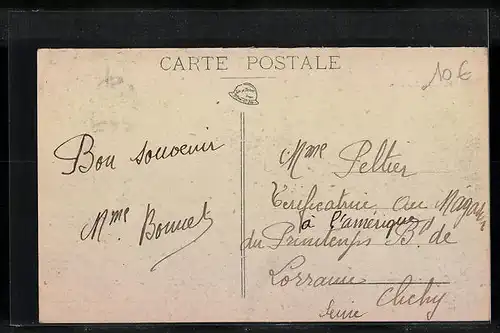 CARTE POSTALE
10€
Bon souvenir
Mme Bonnet
Mme Peltier
Verificatrice au Magasin
à l'amérique
du Printemps Bd de
Lorraine
Clichy
Seine